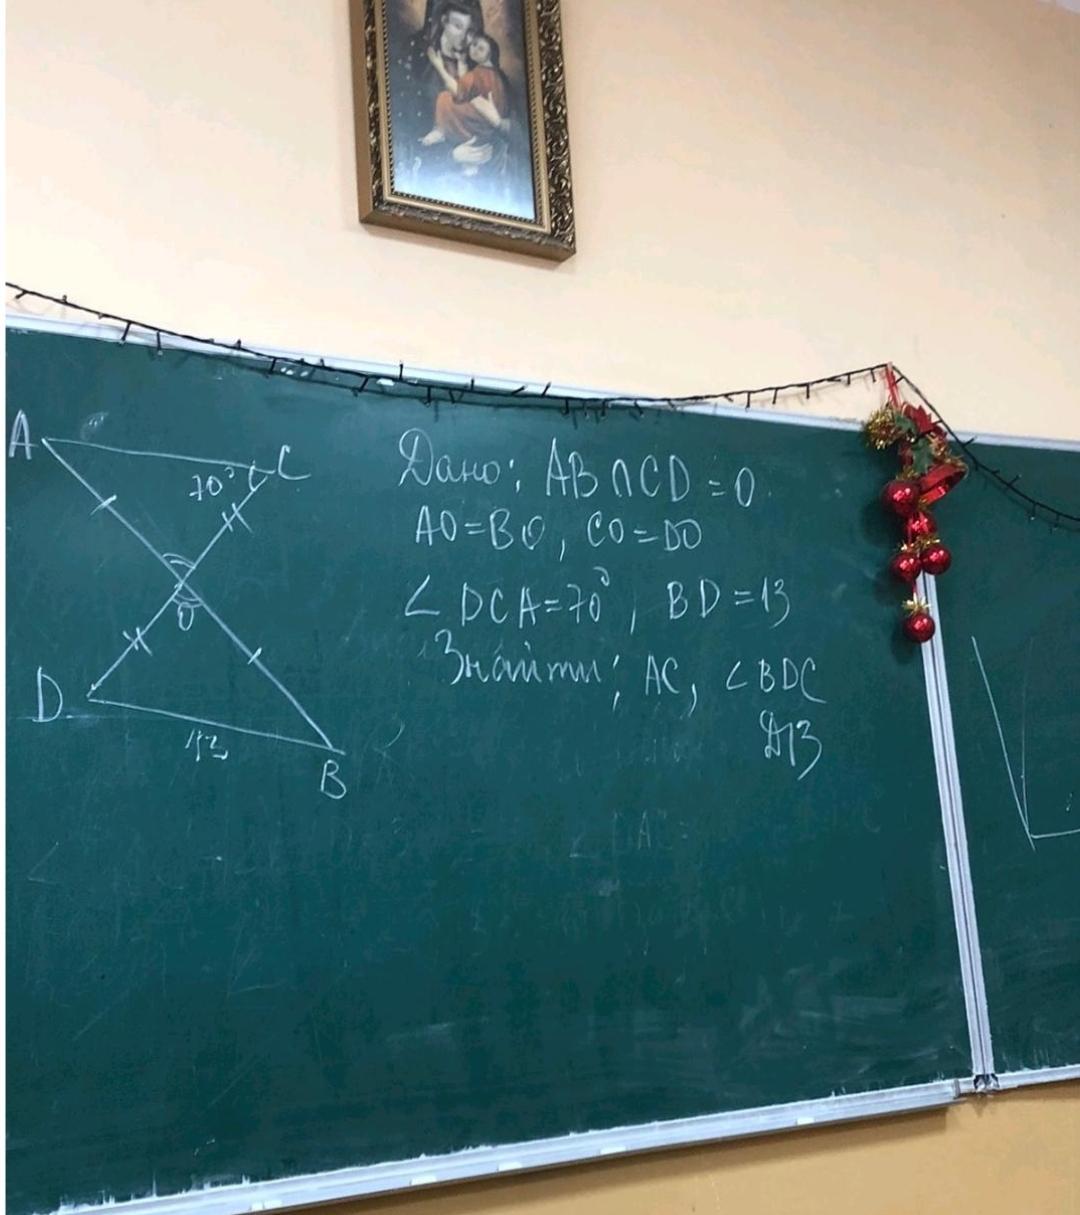 A
C
70°
O
D
13
B
Дано: AB∩CD=O
AO=BO, CO=DO
∠DCA=70°, BD=13
Знайти: AC, ∠BDC